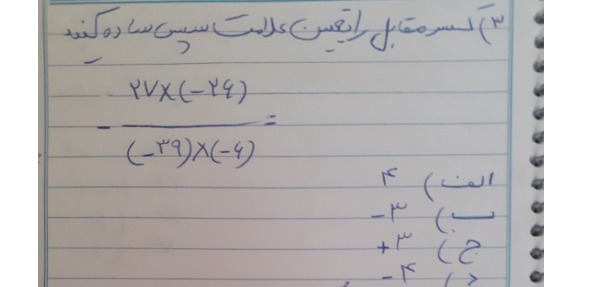 ۳) کسر مقابل را تعیین علامت سپس ساده کنید
۲۷×(-۲۶)
- ———— =
(-۳۹)×(-۶)
الف) ۴
ب) ۳-
ج) ۳+
د) ۴-